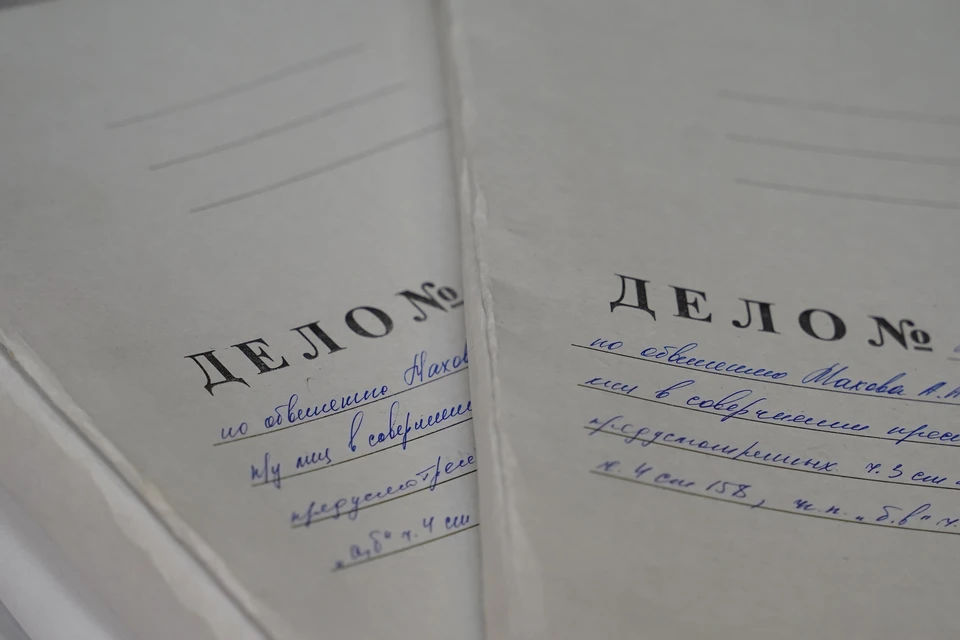 ДЕЛО №
по обвинению Махов
др лиц в совершении
предусмотрен
"а,б" ч. 4 ст
ДЕЛО №
по обвинению Махова А.А
лиц в совершении прес
предусмотренных ч. 3 ст
ч. 4 ст 158, п.п. "б,в" ч.